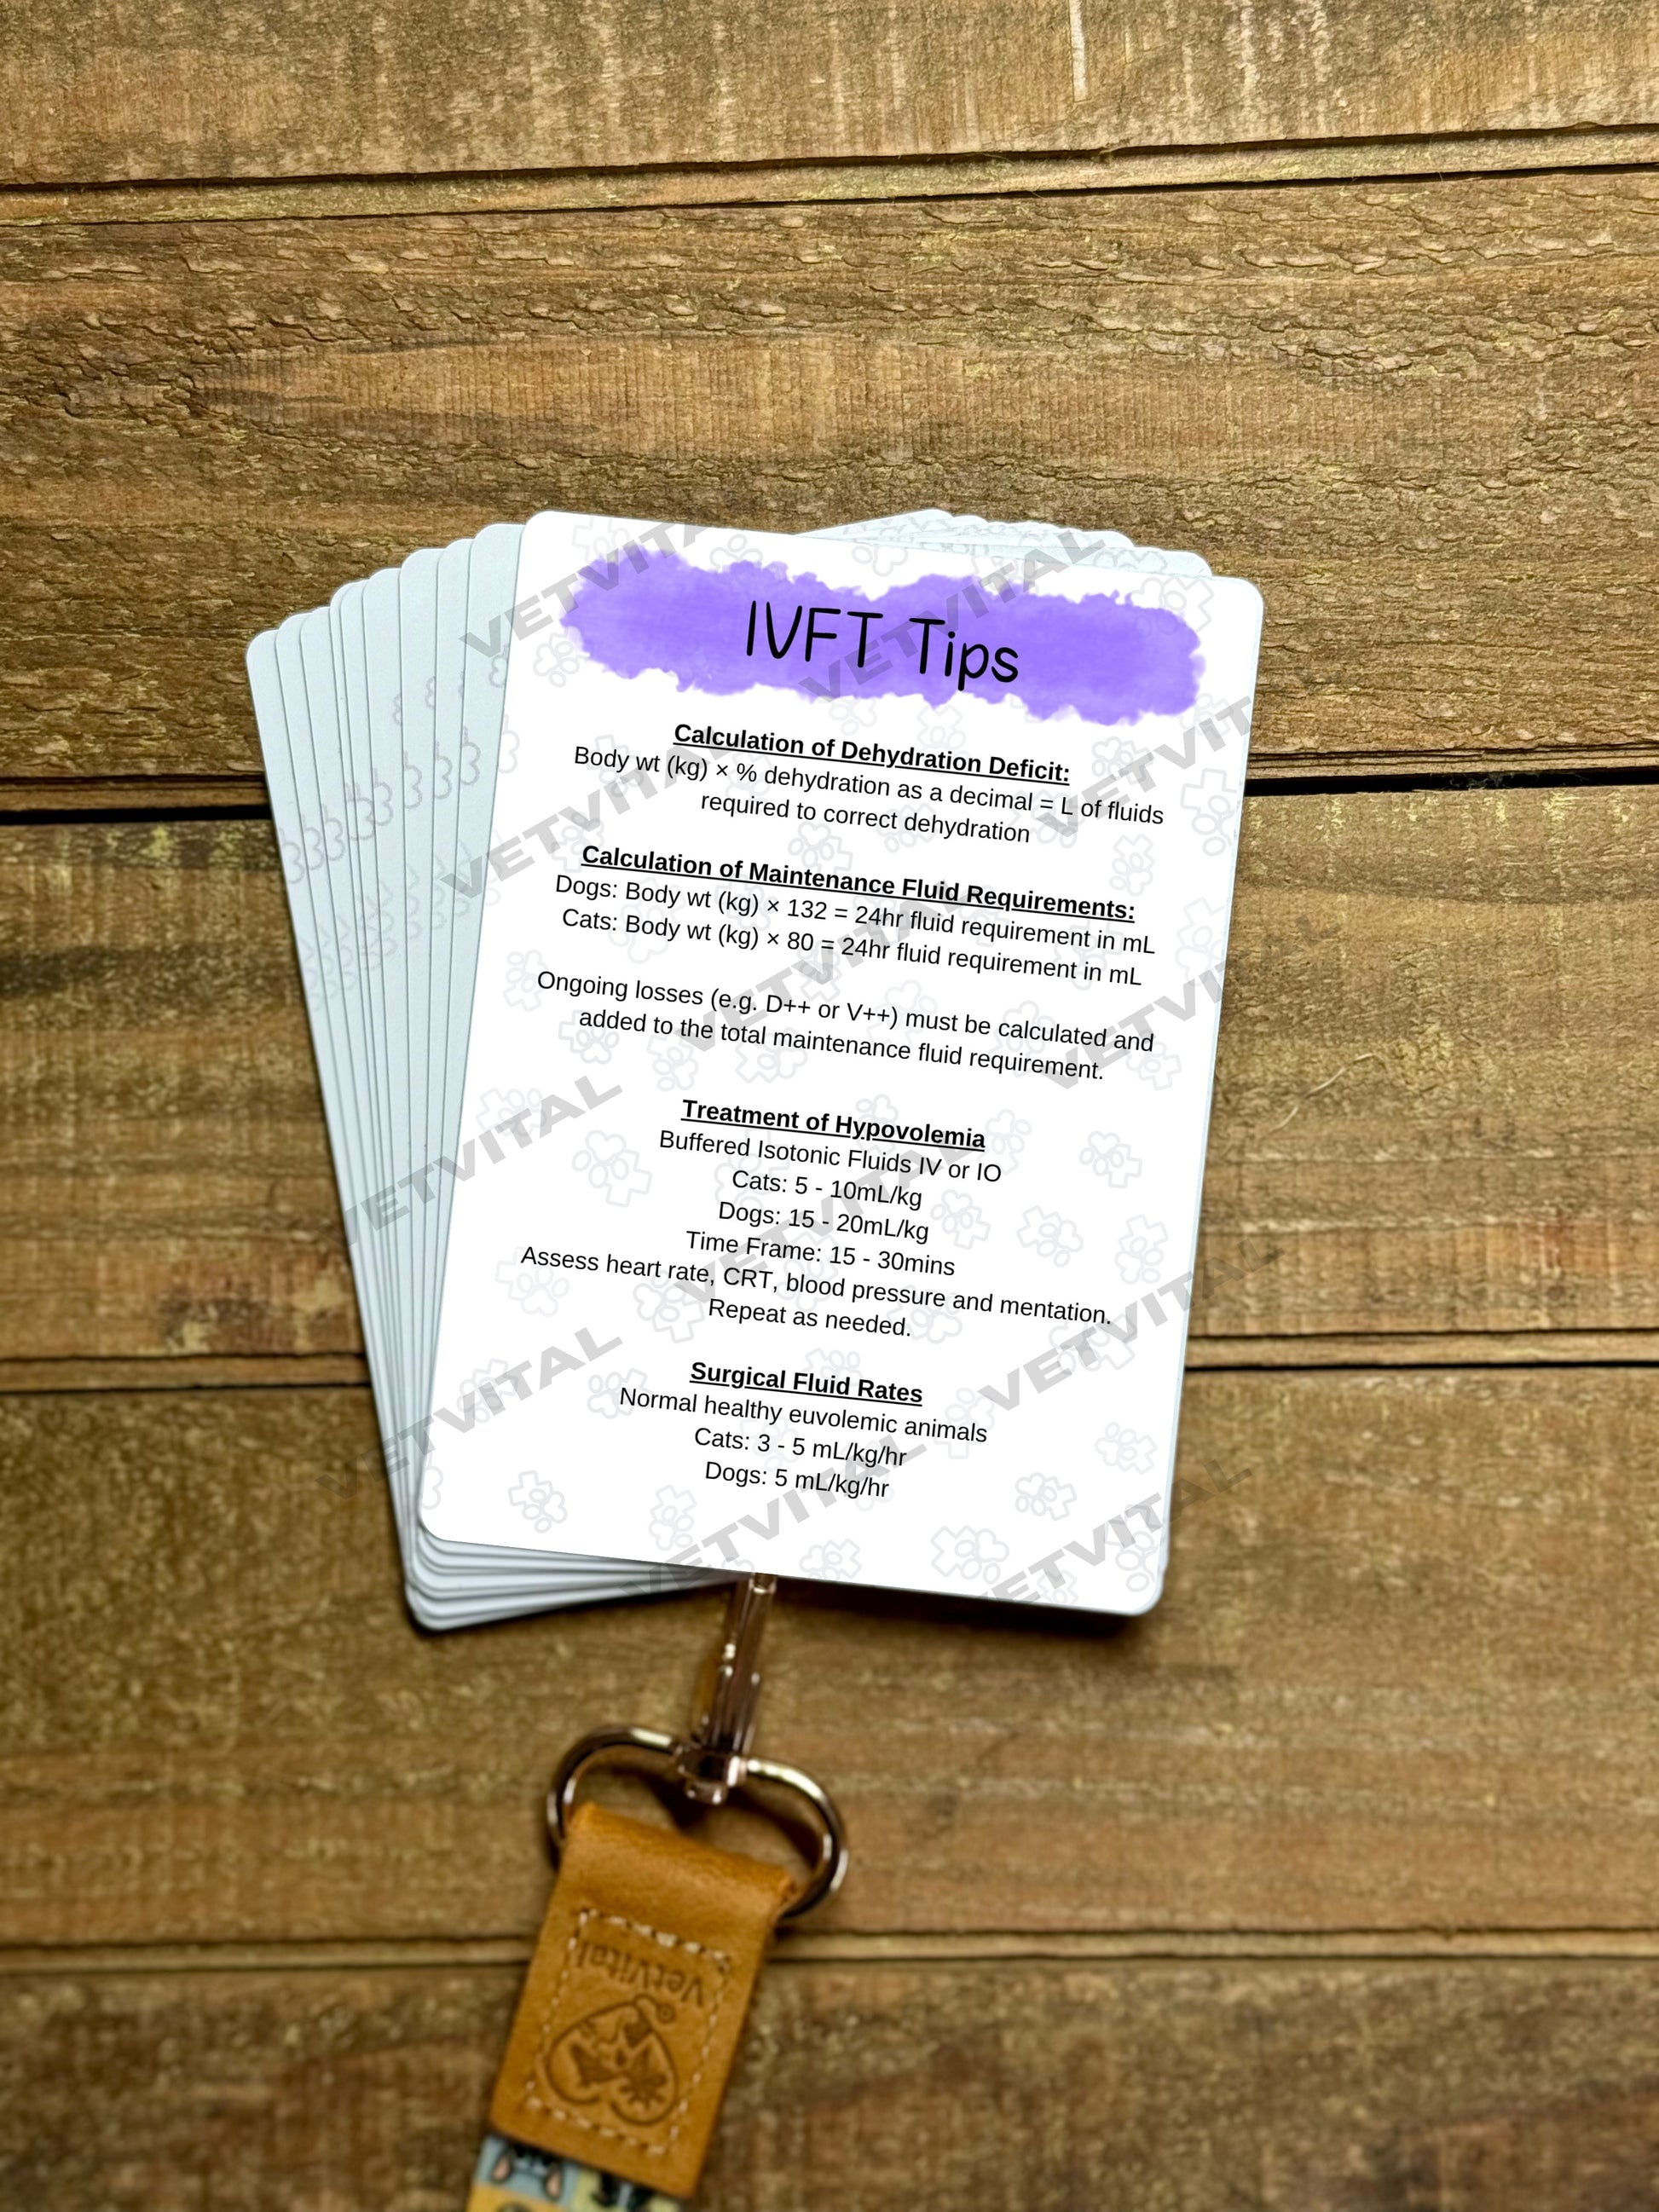 IVFT Tips
Calculation of Dehydration Deficit:
Body wt (kg) × % dehydration as a decimal = L of fluids
required to correct dehydration
Calculation of Maintenance Fluid Requirements:
Dogs: Body wt (kg) × 132 = 24hr fluid requirement in mL
Cats: Body wt (kg) × 80 = 24hr fluid requirement in mL
Ongoing losses (e.g. D++ or V++) must be calculated and
added to the total maintenance fluid requirement.
Treatment of Hypovolemia
Buffered Isotonic Fluids IV or IO
Cats: 5 - 10mL/kg
Dogs: 15 - 20mL/kg
Time Frame: 15 - 30mins
Assess heart rate, CRT, blood pressure and mentation.
Repeat as needed.
Surgical Fluid Rates
Normal healthy euvolemic animals
Cats: 3 - 5 mL/kg/hr
Dogs: 5 mL/kg/hr
VETVITAL
VETVITAL
VETVITAL
VETVITAL
VETVITAL
VETVITAL
VETVITAL
VETVITAL
VETVITAL
VETVITAL
VETVITAL
VETVITAL
VETVITAL
VetVital